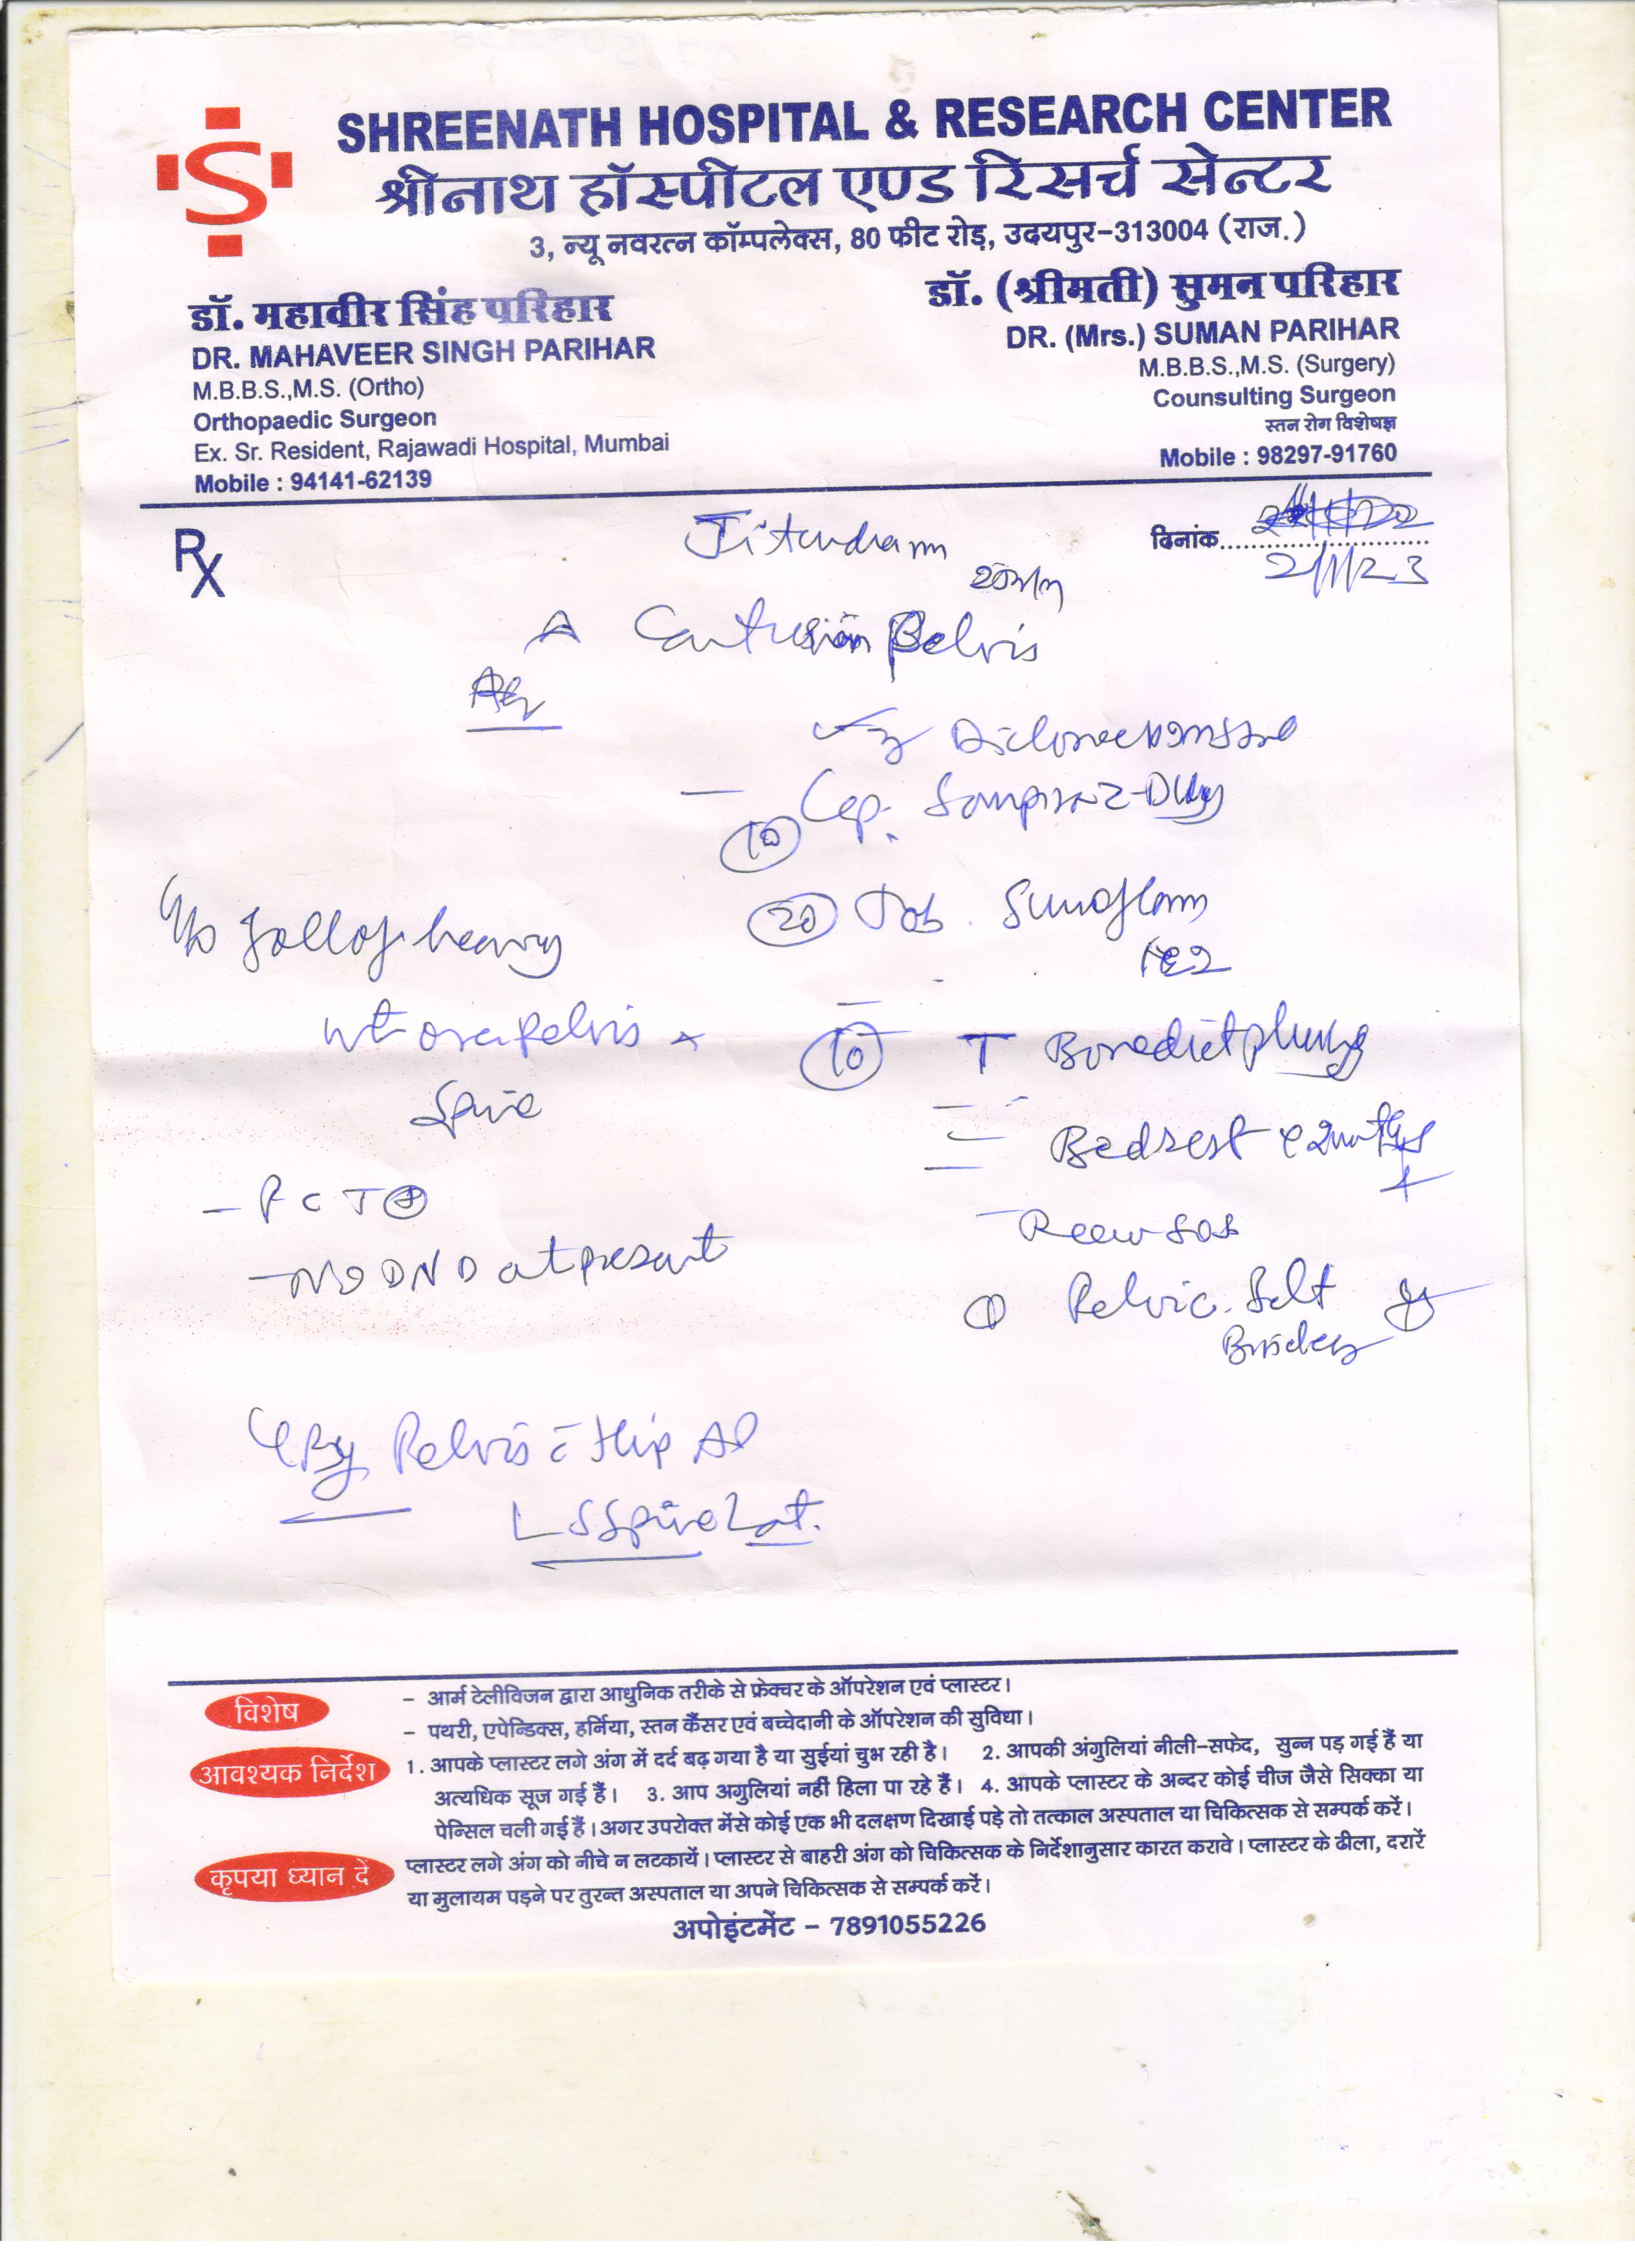 SHREENATH HOSPITAL & RESEARCH CENTER
श्रीनाथ हॉस्पीटल एण्ड रिसर्च सेन्टर
3, न्यू नवरत्न कॉम्पलेक्स, 80 फीट रोड़, उदयपुर-313004 (राज.)
डॉ. महावीर सिंह परिहार
DR. MAHAVEER SINGH PARIHAR
M.B.B.S.,M.S. (Ortho)
Orthopaedic Surgeon
Ex. Sr. Resident, Rajawadi Hospital, Mumbai
Mobile : 94141-62139
डॉ. (श्रीमती) सुमन परिहार
DR. (Mrs.) SUMAN PARIHAR
M.B.B.S.,M.S. (Surgery)
Counsulting Surgeon
स्तन रोग विशेषज्ञ
Mobile : 98297-91760
Rx
दिनांक
2/1/23
Contusion Pelvis
Cap.
10
20 Tab.
10 T
heavy
wt over Pelvis
Spine
- PCT +
- No DND at present
Bedrest
SOS
1 Pelvic Belt
Binder
Pelvis c Hip AP
LS Spine Lat.
विशेष
- आर्म टेलीविजन द्वारा आधुनिक तरीके से फ्रेक्चर के ऑपरेशन एवं प्लास्टर।
- पथरी, एपेन्डिक्स, हर्निया, स्तन कैंसर एवं बच्चेदानी के ऑपरेशन की सुविधा।
आवश्यक निर्देश
1. आपके प्लास्टर लगे अंग में दर्द बढ़ गया है या सुईयां चुभ रही है। 2. आपकी अंगुलियां नीली-सफेद, सुन्न पड़ गई हैं या
अत्यधिक सूज गई हैं। 3. आप अगुलियां नहीं हिला पा रहे हैं। 4. आपके प्लास्टर के अन्दर कोई चीज जैसे सिक्का या
पेन्सिल चली गई हैं। अगर उपरोक्त मेंसे कोई एक भी दलक्षण दिखाई पड़े तो तत्काल अस्पताल या चिकित्सक से सम्पर्क करें।
कृपया ध्यान दें
प्लास्टर लगे अंग को नीचे न लटकायें। प्लास्टर से बाहरी अंग को चिकित्सक के निर्देशानुसार कारत करावे। प्लास्टर के ढीला, दरारें
या मुलायम पड़ने पर तुरन्त अस्पताल या अपने चिकित्सक से सम्पर्क करें।
अपोइंटमेंट - 7891055226